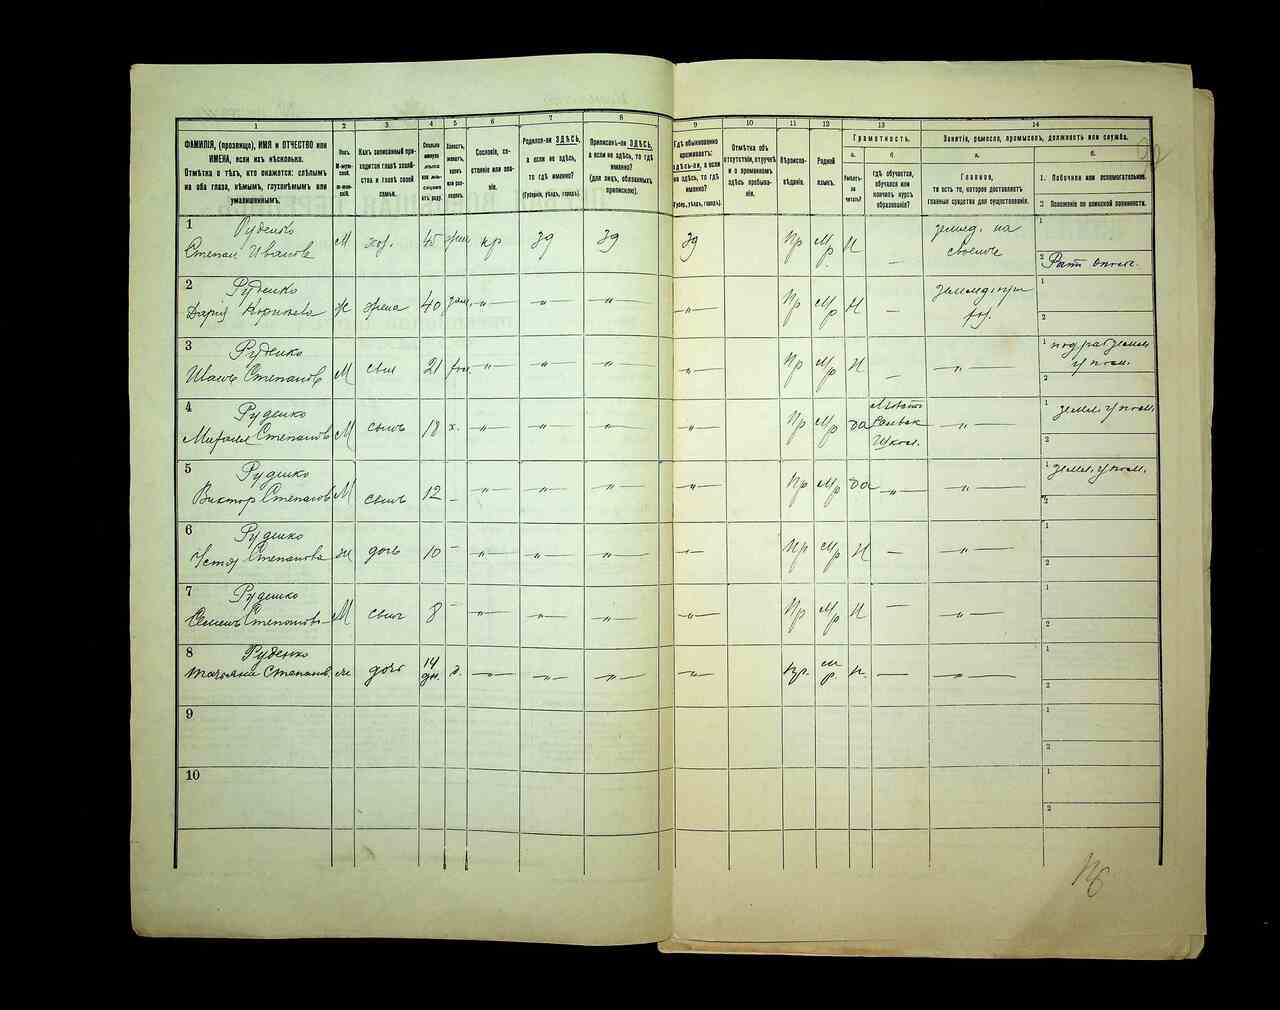 1 2 3 4 5 6 7 8 9 10 11 12 13 14
ФАМИЛІЯ, (прозвище), ИМЯ и ОТЧЕСТВО или
ИМЕНА, если ихъ нѣсколько.
Отмѣтка о тѣхъ, кто окажется: слѣпымъ
на оба глаза, нѣмымъ, глухонѣмымъ или
умалишеннымъ.
Полъ.
М-мужской.
Ж-женскій.
Какъ записанный приходится
главѣ хозяйства и главѣ своей
семьи.
Сколько
минуло
лѣтъ
или мѣсяцевъ
отъ роду.
Холостъ,
женатъ,
вдовъ
или разведенъ.
Сословіе, состояніе
или званіе.
Родился-ли ЗДѢСЬ,
а если не здѣсь,
то гдѣ именно?
(Губернія, уѣздъ, городъ).
Приписанъ-ли ЗДѢСЬ,
а если не здѣсь, то гдѣ
именно?
(для лицъ, обязанныхъ
припискою).
Гдѣ обыкновенно
проживаетъ:
здѣсь-ли, а если
не здѣсь, то гдѣ
именно?
(Губер., уѣздъ, городъ).
Отмѣтка объ
отсутствіи, отлучкѣ
и о временномъ
здѣсь пребываніи.
Вѣроисповѣданіе.
Родной
языкъ.
Грамотность.
а.
Умѣетъ-ли
читать?
б.
Гдѣ обучается,
обучался или
кончилъ курсъ
образованія?
Занятіе, ремесло, промыселъ, должность или служба.
а.
Главное,
то есть то, которое доставляетъ
главныя средства для существованія.
б.
1. Побочное или вспомогательное.
2. Положеніе по воинской повинности.
1 Руденко
Степан Иванов М хоз. 45 жен. кр зд зд зд Пр Мр Н — землед. на своемъ 1
2 Рат. Ополч.
2 Руденко
Дарія Ж жена 40 зам. —"— —"— —"— —"— Пр Мр Н — землед. при 1
2
3 Руденко
Иванъ Степанов М сын 21 —"— —"— —"— —"— Пр Мр Н — —"— 1
2
4 Руденко
Михаил Степанов М сынъ 18 х. —"— —"— —"— —"— Пр Мр да Школ. —"— 1 земл. у пом.
2
5 Руденко
Виктор Степанов М сынъ 12 - —"— —"— —"— —"— Пр Мр да —"— —"— 1 земл. у пом.
2
6 Руденко
Степанова ж дочь 10 - —"— —"— —"— —"— Пр Мр Н — —"— 1
2
7 Руденко
Семенъ Степановъ М сын 8 - —"— —"— —"— —"— Пр Мр Н — —"— 1
2
8 Руденко
Татьяна Степанов. ж дочь 14 дн. д. —"— —"— —"— —"— пр. м р. н. — —"— 1
2
9 1
2
10 1
2